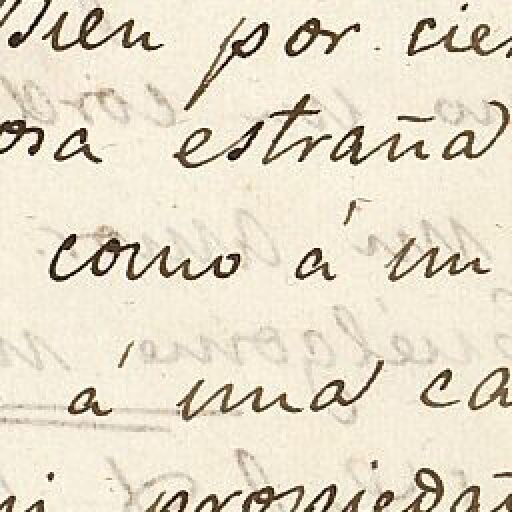 Bien por cier
osa estraña
como á un
á una ca
ni propiedad